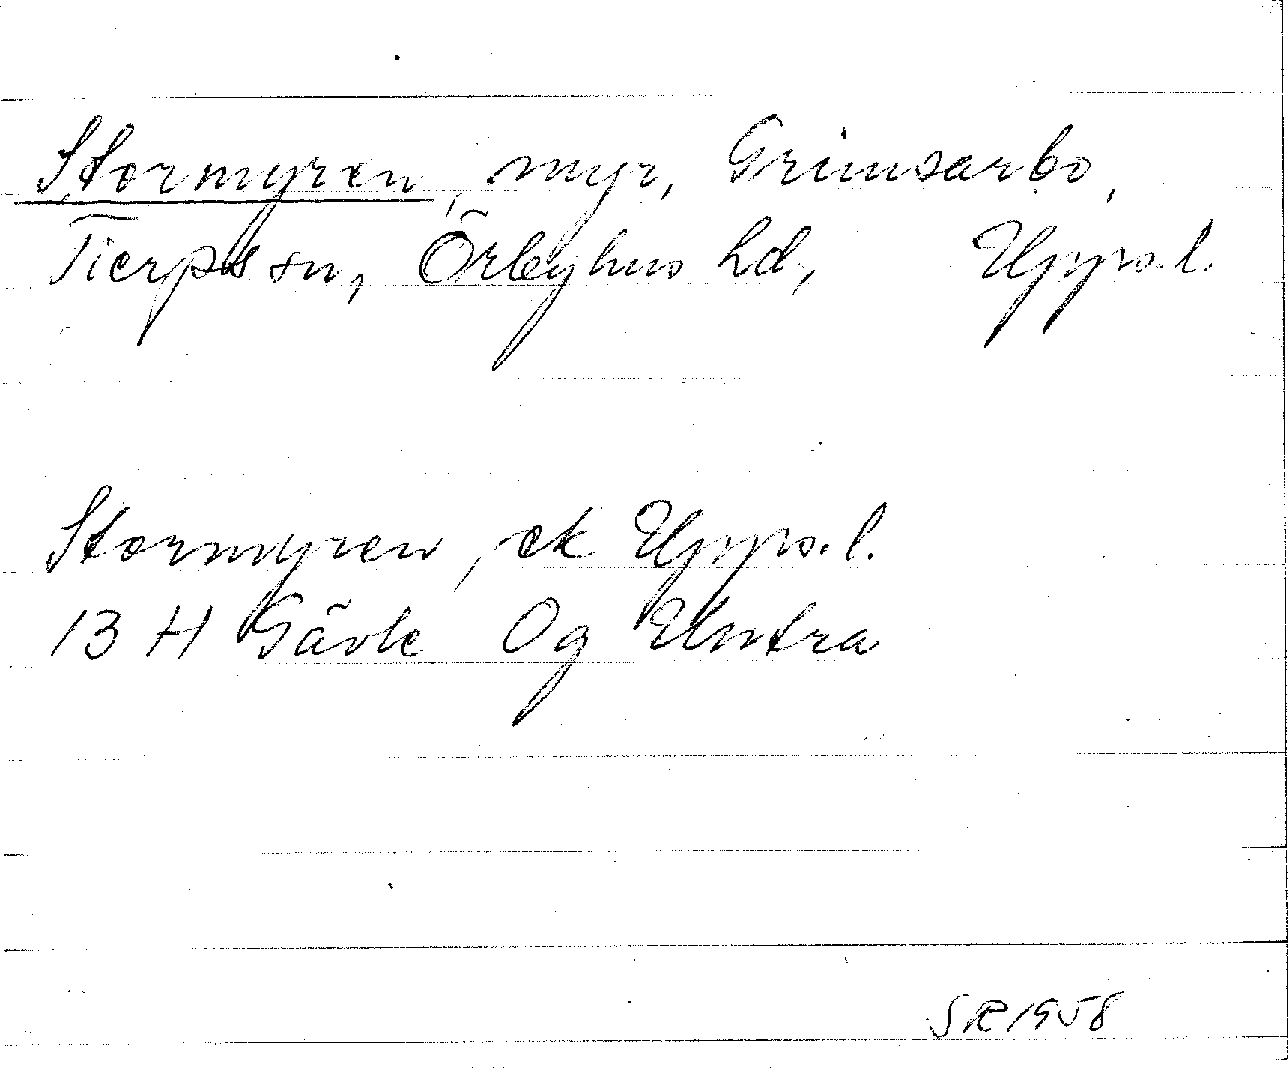 Stormyren, myr, Grimsarbo,
Tierps sn, Örbyhus hd, Upps.l.
Stormyren, ek Upps.l.
13 H Gävle Og Untra
SR 1958